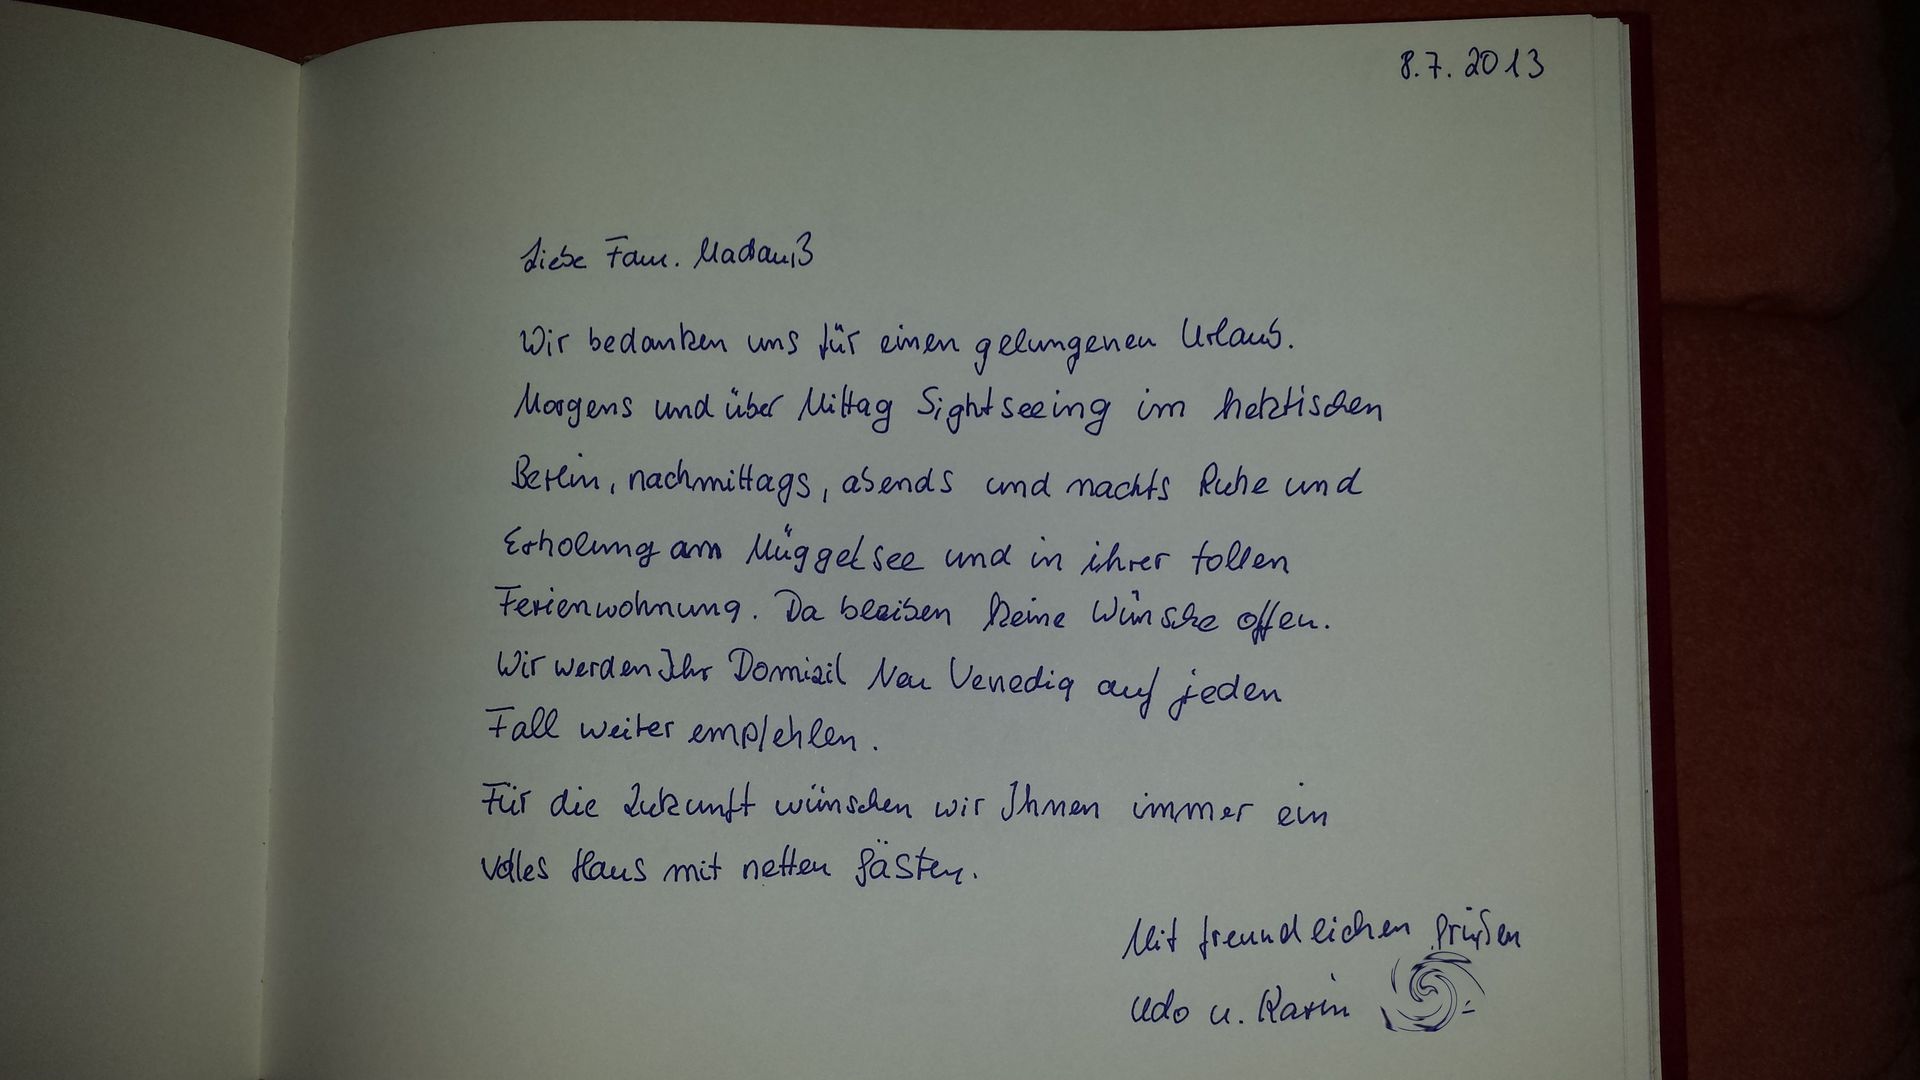 8.7.2013
Liebe Fam.
Wir bedanken uns für einen gelungenen Urlaub.
Morgens und über Mittag Sightseeing im hektischen
Berlin, nachmittags, abends und nachts Ruhe und
Erholung am Müggelsee und in ihrer tollen
Ferienwohnung. Da bleiben keine Wünsche offen.
Wir werden Ihr Domizil Neu Venedig auf jeden
Fall weiter empfehlen.
Für die Zukunft wünschen wir Ihnen immer ein
volles Haus mit netten Gästen.
Mit freundlichen Grüßen
Udo u. Karin